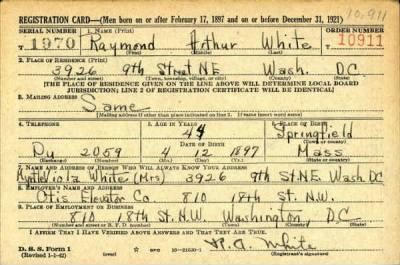 10,911
REGISTRATION CARD—(Men born on or after February 17, 1897 and on or before December 31, 1921)
SERIAL NUMBER 1. NAME (Print) ORDER NUMBER
T 1970 Raymond Arthur White 10911
(First) (Middle) (Last)
2. PLACE OF RESIDENCE (Print)
3926 9th Street NE Wash. DC
(Number and street) (Town, township, village, or city) (County) (State)
[THE PLACE OF RESIDENCE GIVEN ON THE LINE ABOVE WILL DETERMINE LOCAL BOARD
JURISDICTION; LINE 2 OF REGISTRATION CERTIFICATE WILL BE IDENTICAL]
3. MAILING ADDRESS
Same
[Mailing address if other than place indicated on line 2. If same insert word same]
4. TELEPHONE 5. AGE IN YEARS 6. PLACE OF BIRTH
44 Springfield
DATE OF BIRTH (Town or county)
Du 2059 4 12 1897 Mass.
(Exchange) (Number) (Mo.) (Day) (Yr.) (State or country)
7. NAME AND ADDRESS OF PERSON WHO WILL ALWAYS KNOW YOUR ADDRESS
Viola White (Mrs) 3926 9th St. N.E. Wash. DC
8. EMPLOYER'S NAME AND ADDRESS
Otis Elevator Co. 810 18th St. N.W.
9. PLACE OF EMPLOYMENT OR BUSINESS
810 18th St. N.W. Washington, D.C.
(Number and street or R. F. D. number) (Town) (County) (State)
I AFFIRM THAT I HAVE VERIFIED ABOVE ANSWERS AND THAT THEY ARE TRUE.
D. S. S. Form 1
(Revised 1-1-42) (over) R. A. White
(Registrant's signature)